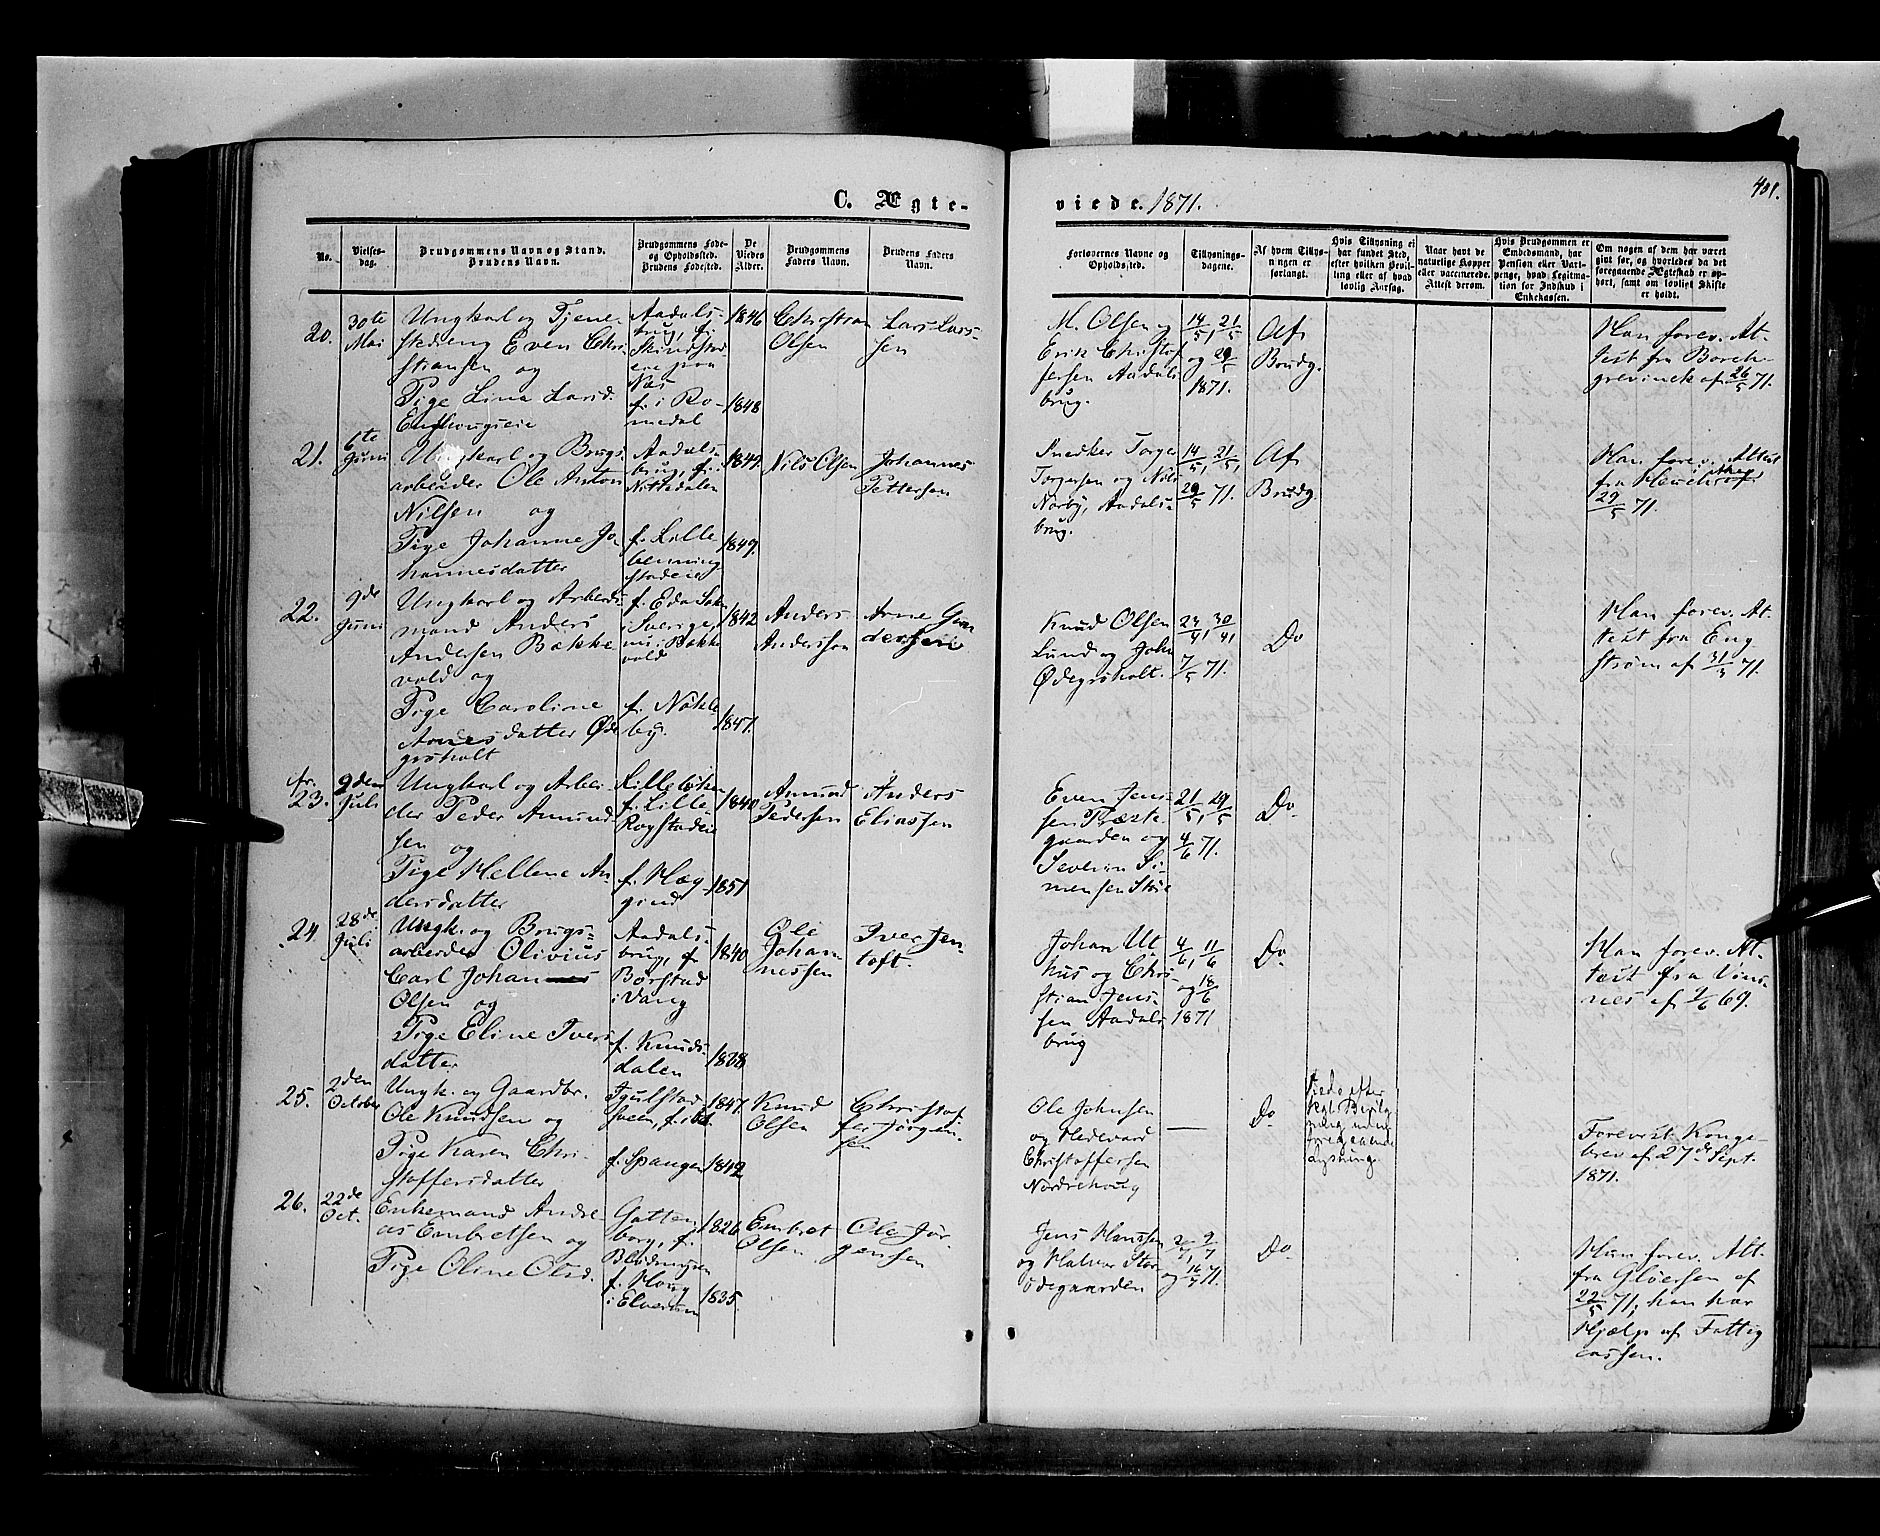 401.
C. Ægte-
viede. 1871.
No.
Vielses-
dag.
Brudgommens Navn og Stand.
Brudens Navn.
Brudgommens Føde-
og Opholdssted.
Brudens Fødested.
De
Viedes
Alder.
Brudgommens
Faders Navn.
Brudens Faders
Navn.
Forlovernes Navne og
Opholdssted.
Tillysnings-
dagene.
Af hvem Tillys-
ningen er
forlangt.
Hvis Tillysning ei
har fundet Sted,
efter hvilken Bevil-
ling eller af hvad
lovlig Aarsag.
Naar havt de
naturlige Kopper
eller vaccinerede.
Attest derom.
Hvis Brudgommen er
Embedsmand, har
Pension eller Vart-
penge, hvad Legitima-
tion for Indskud i
Enkekassen.
Om nogen af dem har været
gift før, og hvorledes da det
foregaaende Ægteskab er op-
hørt, samt om lovligt Skifte
er holdt.
20.
30te
Mai
Ungkarl og Tjene-
stedreng Even Chri-
stiansen og
Pige Lina Larsd.
Aadals-
brug, f.
eie paa
Næs
f. i Ro-
medal
1846
1848
Christian
Olsen
Lars Lars-
sen
M. Olsen og
Erik Christof
fersen Aadals
brug.
14/5, 21/5
og 29/5
1871.
Af
Brudg.
Han forev. At-
test fra Borch-
grevinck af 26/5 71.
21.
6te
Juni
Ungkarl og Brugs
arbeider Ole Anton
Nilsen og
Pige Johanne Jo-
hannesdatter
Aadals-
brug, f. i
Nittedalen
f. Lille
benning
stadeie
1849.
1849.
Nils Olsen
Johannes
Pettersen
Snedker Torge
Torgersen og Nils
Norby, Aadals-
brug.
14/5, 21/5,
29/5 71.
Af
Brudg.
Han forev. Attest
fra
29/5 71.
22.
9de
Juni
Ungkarl og Arbeids-
mand Anders
Andersen Bakke
vold og
Pige Caroline
Arnesdatter Øde
grsholt
f. Eda Sokn
i Sverige,
nu i Bakke
vold
f. Nökle-
by.
1842
1847.
Anders
Andersson
Arne Gun
dersen
Knud Olsen
Lund og John
Ødegrsholt.
23/4, 30/4
7/5 71.
Do
Han forev. At-
test fra Eng
strøm af 31/3 71.
Nr.
23.
9den
Juli
Ungkarl og Arbei-
der Peder Amund
sen og
Pige Hellene An-
dersdatter
f. Lille
Rogstadeie
f. Hæg
1840
1851
Amund
Pedersen
Anders
Eliassen
Even Jens-
sen Præste
gaarden og
Severin Si-
mensen
21/5, 29/5
4/6 71.
Do
24
28de
Juli
Ungk. og Brugs-
arbeider Olivius
Carl Johannes
Olsen og
Pige Eline Ivers
datter
Aadals-
brug, f.
Børstad
i Vang
f. Knuds-
dalen
1840
1838
Ole
Johan
nessen
Iver Jen-
toft.
Johan Ut
hus og Chri-
stian Jens-
sen Aadals
brug
4/6, 11/6
og 18/6
1871
Do
Han forev. At-
test fra Vins-
nes af 9/6 69.
25.
2den
October
Ungk. og Gaardbr.
Ole Knudsen og
Pige Karen Chri-
stoffersdatter
f. ibd.
f. Spangen
1847.
1842
Knud
Olsen
Christof
fer Jørgen-
sen
Ole Johnsen
og Hedevard
Christoffersen
Nordrehoug
—
Do
Viede efter
kgl. Bevilg
ning uden
foregaaende
Lysning.
Forevist Konge-
brev af 27de Sept.
1871.
26.
22de
Oct.
Enkemand Andre
as Embretsen og
Pige Oline Olsd.
Gatten
borg, f.
f. Houg
i Elverum
1826
1835.
Embret
Olsen
Ole Jør-
gensen
Jens Hanssen
og Halvor Stor
ødegaarden
2/7, 9/7
og 16/7 71.
Do
Hun forev. Att.
fra Gløersen af
22/5 71; han har
Hjælp af Fattig
cassen.